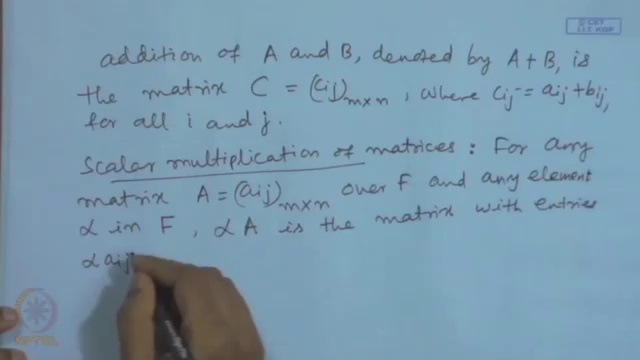 © CET
I.I.T. KGP
addition of A and B, denoted by A+B, is
the matrix C = (cij)m×n, where cij = aij + bij,
for all i and j.
Scalar multiplication of matrices: For any
matrix A = (aij)m×n over F and any element
α in F, αA is the matrix with entries
α aij
NPTEL